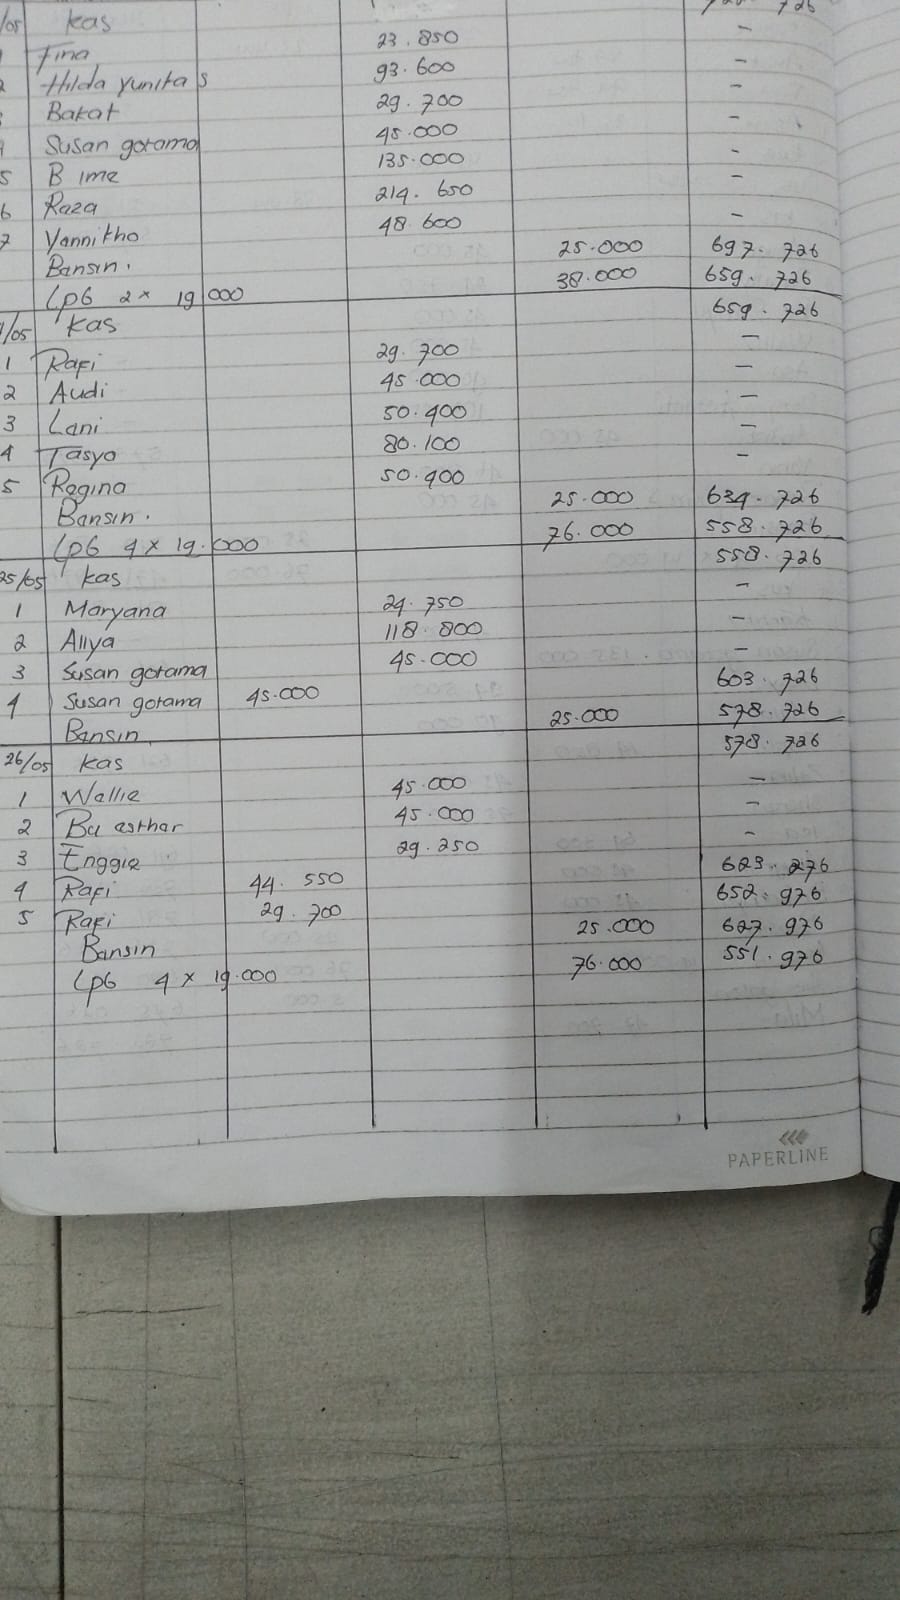 /05 kas 722. 726
1 Fina 23.850 -
2 Hilda yunita s 93.600 -
3 Bakat 29.700 -
4 Susan gotama 45.000 -
5 Bime 135.000 -
6 Raza 214.650 -
7 Yannitho 48.600 -
Bansin. 25.000 697.726
Lp6 2 x 19.000 38.000 659.726
/05 kas 659.726
1 Rafi 29.700 -
2 Audi 45.000 -
3 Lani 50.400 -
4 Tasya 80.100 -
5 Regina 50.400 -
Bansin. 25.000 634.726
Lp6 4 x 19.000 76.000 558.726
25/05 kas 558.726
1 Maryana 24.750 -
2 Aliya 118.800 -
3 Susan gotama 45.000 -
4 Susan gotama 45.000 603.726
Bansin 25.000 578.726
26/05 kas 578.726
1 Wallie 45.000 -
2 Bu asthar 45.000 -
3 Enggie 29.250 -
4 Rafi 44.550 623.276
5 Rafi 29.700 652.976
Bansin 25.000 627.976
Lp6 4 x 19.000 76.000 551.976
PAPERLINE